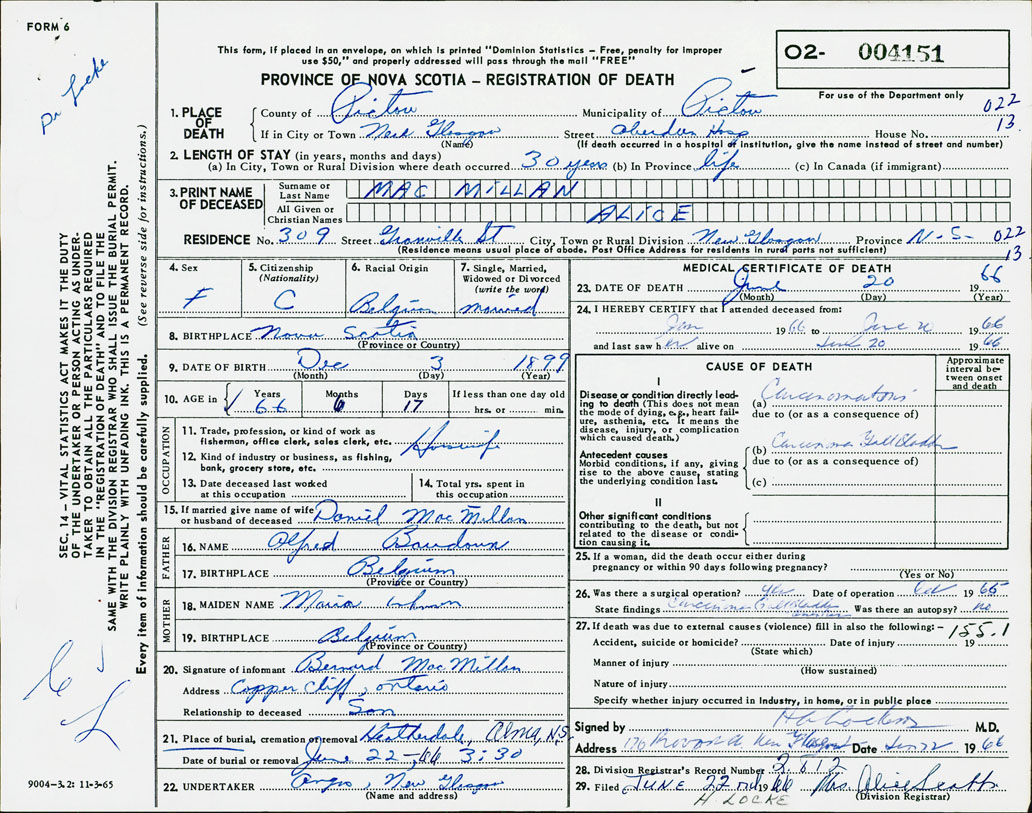 FORM 6
Dr Locke
This form, if placed in an envelope, on which is printed "Dominion Statistics – Free, penalty for improper
use $50," and properly addressed will pass through the mail "FREE"
PROVINCE OF NOVA SCOTIA – REGISTRATION OF DEATH
O2- 004151
For use of the Department only
022
13
1. PLACE OF DEATH
County of Pictou Municipality of Pictou
If in City or Town New Glasgow Street Aberdeen Hosp House No.
(Name) (If death occurred in a hospital or institution, give the name instead of street and number)
2. LENGTH OF STAY (in years, months and days)
(a) In City, Town or Rural Division where death occurred 30 years (b) In Province life (c) In Canada (if immigrant)
3. PRINT NAME OF DECEASED
Surname or Last Name MAC MILLAN
All Given or Christian Names ALICE
RESIDENCE No. 309 Street Granville St City, Town or Rural Division New Glasgow Province N-S- 022
(Residence means usual place of abode. Post Office Address for residents in rural parts not sufficient) 13
4. Sex F
5. Citizenship (Nationality) C
6. Racial Origin Belgian
7. Single, Married, Widowed or Divorced (write the word) married
8. BIRTHPLACE Nova Scotia
(Province or Country)
9. DATE OF BIRTH Dec 3 1899
(Month) (Day) (Year)
10. AGE in Years 66 Months 6 Days 17 If less than one day old hrs. or min.
OCCUPATION
11. Trade, profession, or kind of work as fisherman, office clerk, sales clerk, etc. Housewife
12. Kind of industry or business, as fishing, bank, grocery store, etc.
13. Date deceased last worked at this occupation
14. Total yrs. spent in this occupation
15. If married give name of wife or husband of deceased Daniel MacMillan
FATHER
16. NAME Alfred
17. BIRTHPLACE Belgium
(Province or Country)
MOTHER
18. MAIDEN NAME Maria
19. BIRTHPLACE Belgium
(Province or Country)
20. Signature of informant Bernard MacMillan
Address Copper Cliff, Ontario
Relationship to deceased Son
21. Place of burial, cremation or removal Heatherdale, Alma, N.S.
Date of burial or removal June 22-66 3:30
22. UNDERTAKER New Glasgow
(Name and address)
MEDICAL CERTIFICATE OF DEATH
23. DATE OF DEATH June 20 1966
(Month) (Day) (Year)
24. I HEREBY CERTIFY that I attended deceased from:
Jan 1966 to June 20 1966
and last saw her alive on June 20 1966
CAUSE OF DEATH
Approximate interval between onset and death
I
Disease or condition directly leading to death (This does not mean the mode of dying, e.g., heart failure, asthenia, etc. It means the disease, injury, or complication which caused death.)
(a) Carcinomatosis
due to (or as a consequence of)
Antecedent causes
Morbid conditions, if any, giving rise to the above cause, stating the underlying condition last.
(b) Carcinoma Gall Bladder
due to (or as a consequence of)
(c)
II
Other significant conditions contributing to the death, but not related to the disease or condition causing it.
25. If a woman, did the death occur either during
pregnancy or within 90 days following pregnancy?
(Yes or No)
26. Was there a surgical operation? yes Date of operation Oct 1965
State findings Carcinoma Gall Bladder Was there an autopsy? no
27. If death was due to external causes (violence) fill in also the following:– 155.1
Accident, suicide or homicide? Date of injury 19
(State which)
Manner of injury
(How sustained)
Nature of injury
Specify whether injury occurred in Industry, in home, or in public place
Signed by M.D.
Address New Glasgow Date 1966
28. Division Registrar's Record Number
29. Filed JUNE 22nd 1966 Mrs. Alice
H. LOCKE (Division Registrar)
SEC. 14 – VITAL STATISTICS ACT MAKES IT THE DUTY
OF THE UNDERTAKER OR PERSON ACTING AS UNDER-
TAKER TO OBTAIN ALL THE PARTICULARS REQUIRED
IN THE "REGISTRATION OF DEATH" AND TO FILE THE
SAME WITH THE DIVISION REGISTRAR WHO SHALL ISSUE THE BURIAL PERMIT.
WRITE PLAINLY WITH UNFADING INK. THIS IS A PERMANENT RECORD.
Every item of information should be carefully supplied. (See reverse side for instructions.)
9004-3.2: 11-3-65